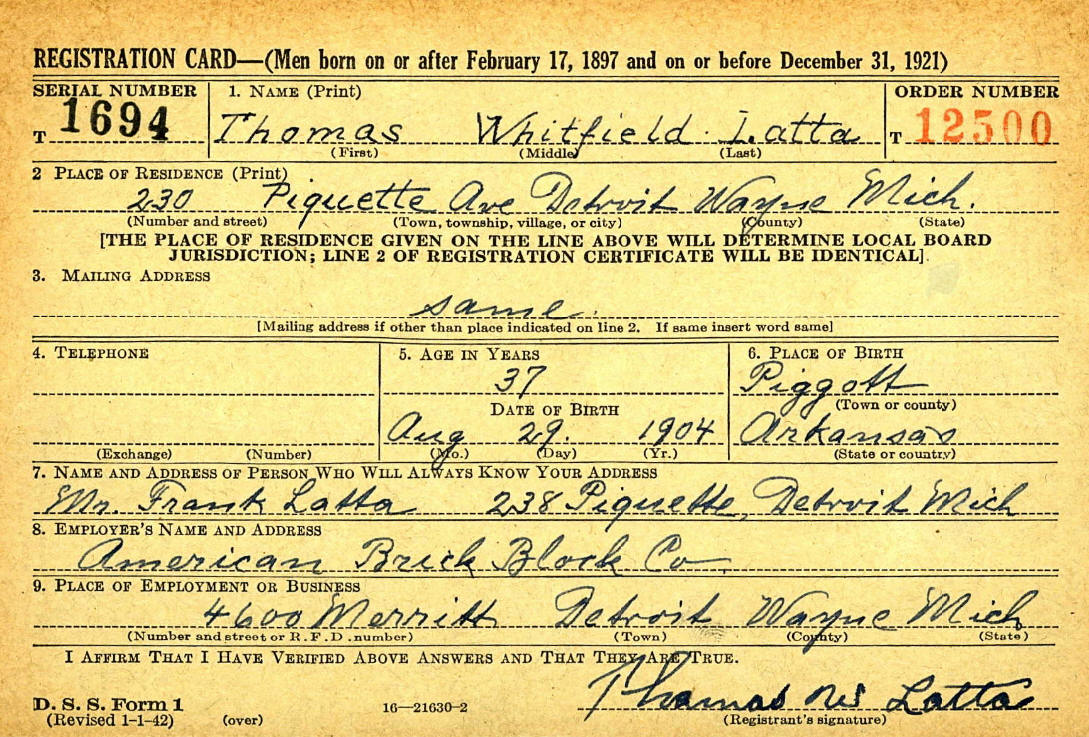 REGISTRATION CARD—(Men born on or after February 17, 1897 and on or before December 31, 1921)
SERIAL NUMBER 1. NAME (Print) ORDER NUMBER
T 1694 Thomas Whitfield Latta T 12500
(First) (Middle) (Last)
2 PLACE OF RESIDENCE (Print)
230 Piquette Ave Detroit Wayne Mich.
(Number and street) (Town, township, village, or city) (County) (State)
[THE PLACE OF RESIDENCE GIVEN ON THE LINE ABOVE WILL DETERMINE LOCAL BOARD
JURISDICTION; LINE 2 OF REGISTRATION CERTIFICATE WILL BE IDENTICAL]
3. MAILING ADDRESS
same.
[Mailing address if other than place indicated on line 2. If same insert word same]
4. TELEPHONE 5. AGE IN YEARS 6. PLACE OF BIRTH
37 Piggott
DATE OF BIRTH (Town or county)
Aug 29. 1904 Arkansas
(Exchange) (Number) (Mo.) (Day) (Yr.) (State or country)
7. NAME AND ADDRESS OF PERSON WHO WILL ALWAYS KNOW YOUR ADDRESS
Mr. Frank Latta 238 Piquette, Detroit Mich
8. EMPLOYER'S NAME AND ADDRESS
American Brick Block Co.
9. PLACE OF EMPLOYMENT OR BUSINESS
4600 Merritt Detroit Wayne Mich
(Number and street or R. F. D. number) (Town) (County) (State)
I AFFIRM THAT I HAVE VERIFIED ABOVE ANSWERS AND THAT THEY ARE TRUE.
Thomas Latta
D. S. S. Form 1
(Revised 1-1-42) (over) 16—21630-2 (Registrant's signature)